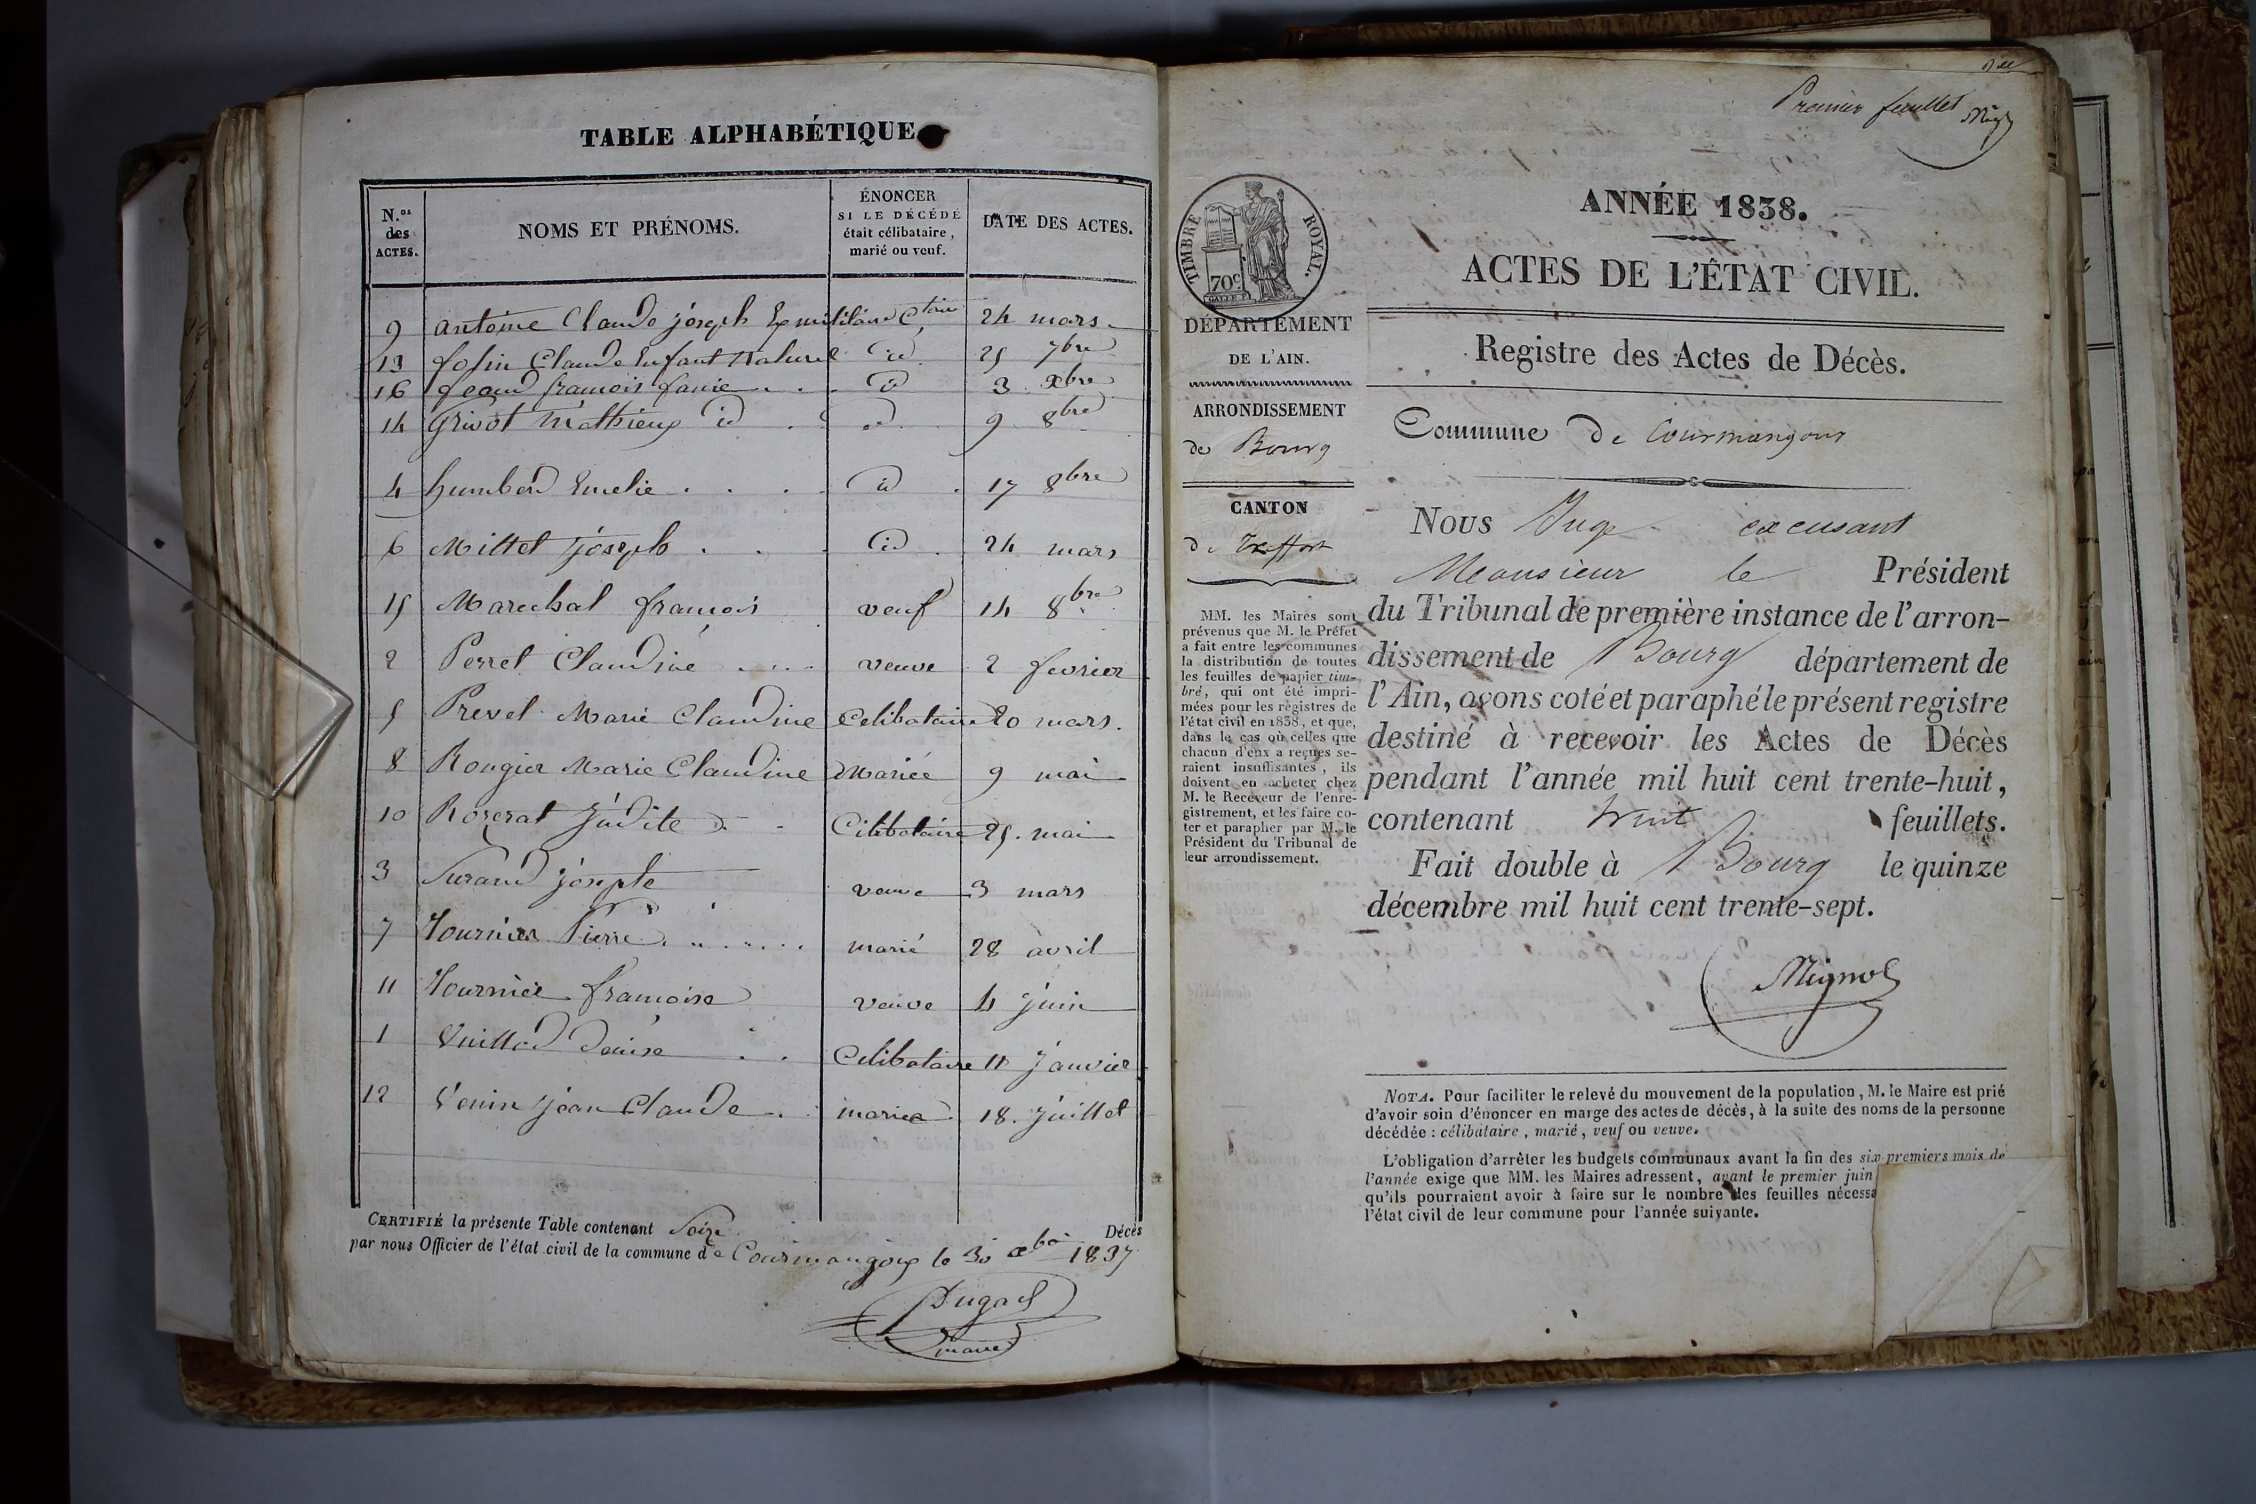 TABLE ALPHABÉTIQUE
N.os des ACTES.
NOMS ET PRÉNOMS.
ÉNONCER
SI LE DÉCÉDÉ
était célibataire,
marié ou veuf.
DATE DES ACTES.
9 antoine Claude joseph Exmilitaire 24 mars
13 Claude Enfant Naturel id 25 7bre
16 francois id 3 xbre
14 Grivot Mathieux id id 9 8bre
4 humberd Emelie id 17 8bre
6 Millet joseph id 24 mars
15 Marechal francois veuf 14 8bre
2 Perret Claudine veuve 2 fevrier
5 Prevel Marie Claudine Celibataire 20 mars.
8 Rougier Marie Claudine Mariée 9 mai
10 Rozerat Judite Celibataire 25. mai
3 Surand josephte veuve 3 mars
7 Tournier Pierre marié 28 avril
11 Tournier francoise veuve 4 juin
1 Vuillod Denise Celibataire 11 janvier
12 Venin jean Claude mariée 18. juillet
CERTIFIÉ la présente Table contenant Seize Décès
par nous Officier de l'état civil de la commune de Courmangoux le 30 xbre 1837
Dugad
maire
Premier feuillet
TIMBRE ROYAL.
70c
ANNÉE 1838.
ACTES DE L'ÉTAT CIVIL.
Registre des Actes de Décès.
Commune de Courmangoux
DÉPARTEMENT
DE L'AIN.
ARRONDISSEMENT
de Bourg
CANTON
de Treffort
MM. les Maires sont
prévenus que M. le Préfet
a fait entre les communes
la distribution de toutes
les feuilles de papier tim-
bré, qui ont été impri-
mées pour les registres de
l'état civil en 1838, et que,
dans le cas où celles que
chacun d'eux a reçues se-
raient insuffisantes, ils
doivent en acheter chez
M. le Receveur de l'enre-
gistrement, et les faire co-
ter et parapher par M. le
Président du Tribunal de
leur arrondissement.
Nous Juge excusant
Monsieur le Président
du Tribunal de première instance de l'arron-
dissement de Bourg département de
l'Ain, avons coté et paraphé le présent registre
destiné à recevoir les Actes de Décès
pendant l'année mil huit cent trente-huit,
contenant huit feuillets.
Fait double à Bourg le quinze
décembre mil huit cent trente-sept.
Mignot
NOTA. Pour faciliter le relevé du mouvement de la population, M. le Maire est prié
d'avoir soin d'énoncer en marge des actes de décès, à la suite des noms de la personne
décédée : célibataire, marié, veuf ou veuve.
L'obligation d'arrêter les budgets communaux avant la fin des six premiers mois de
l'année exige que MM. les Maires adressent, avant le premier juin
qu'ils pourraient avoir à faire sur le nombre des feuilles nécessa
l'état civil de leur commune pour l'année suivante.